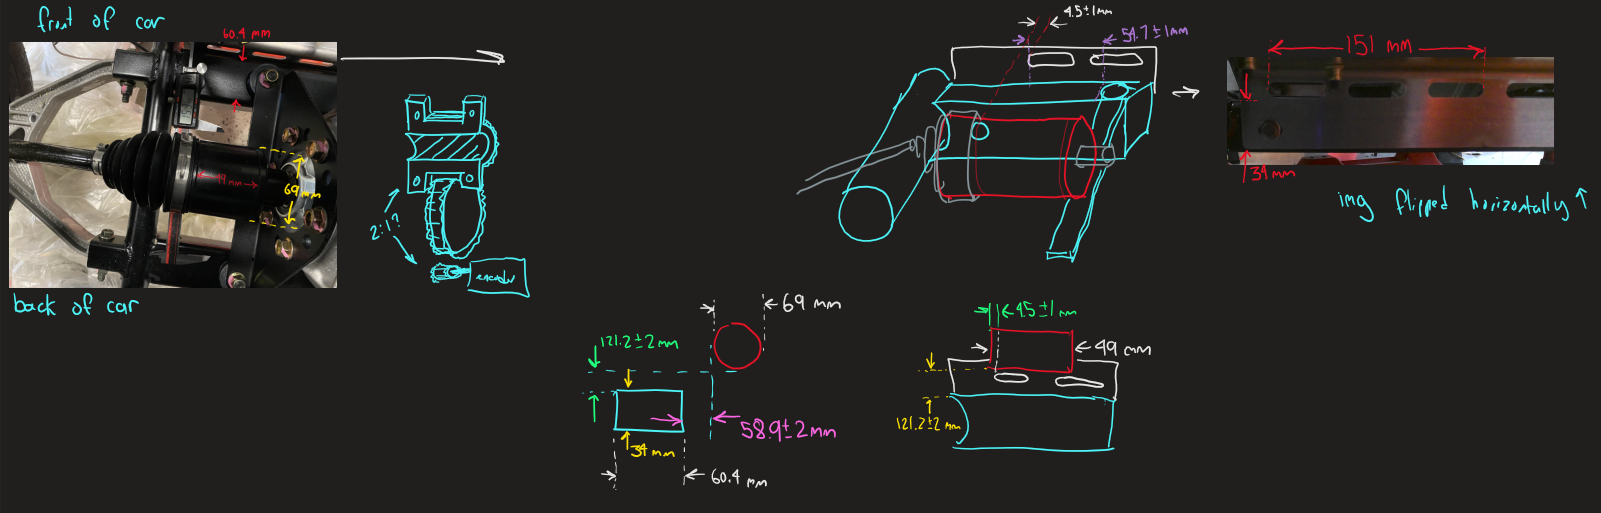 front of car
60.4 mm
49 mm
69 mm
back of car
2:1?
encoder
4.5±1mm
54.7±1mm
151 mm
34mm
img flipped horizontally ↑
69 mm
121.2±2mm
58.9±2mm
34 mm
60.4 mm
4.5±1mm
49 mm
121.2±2mm